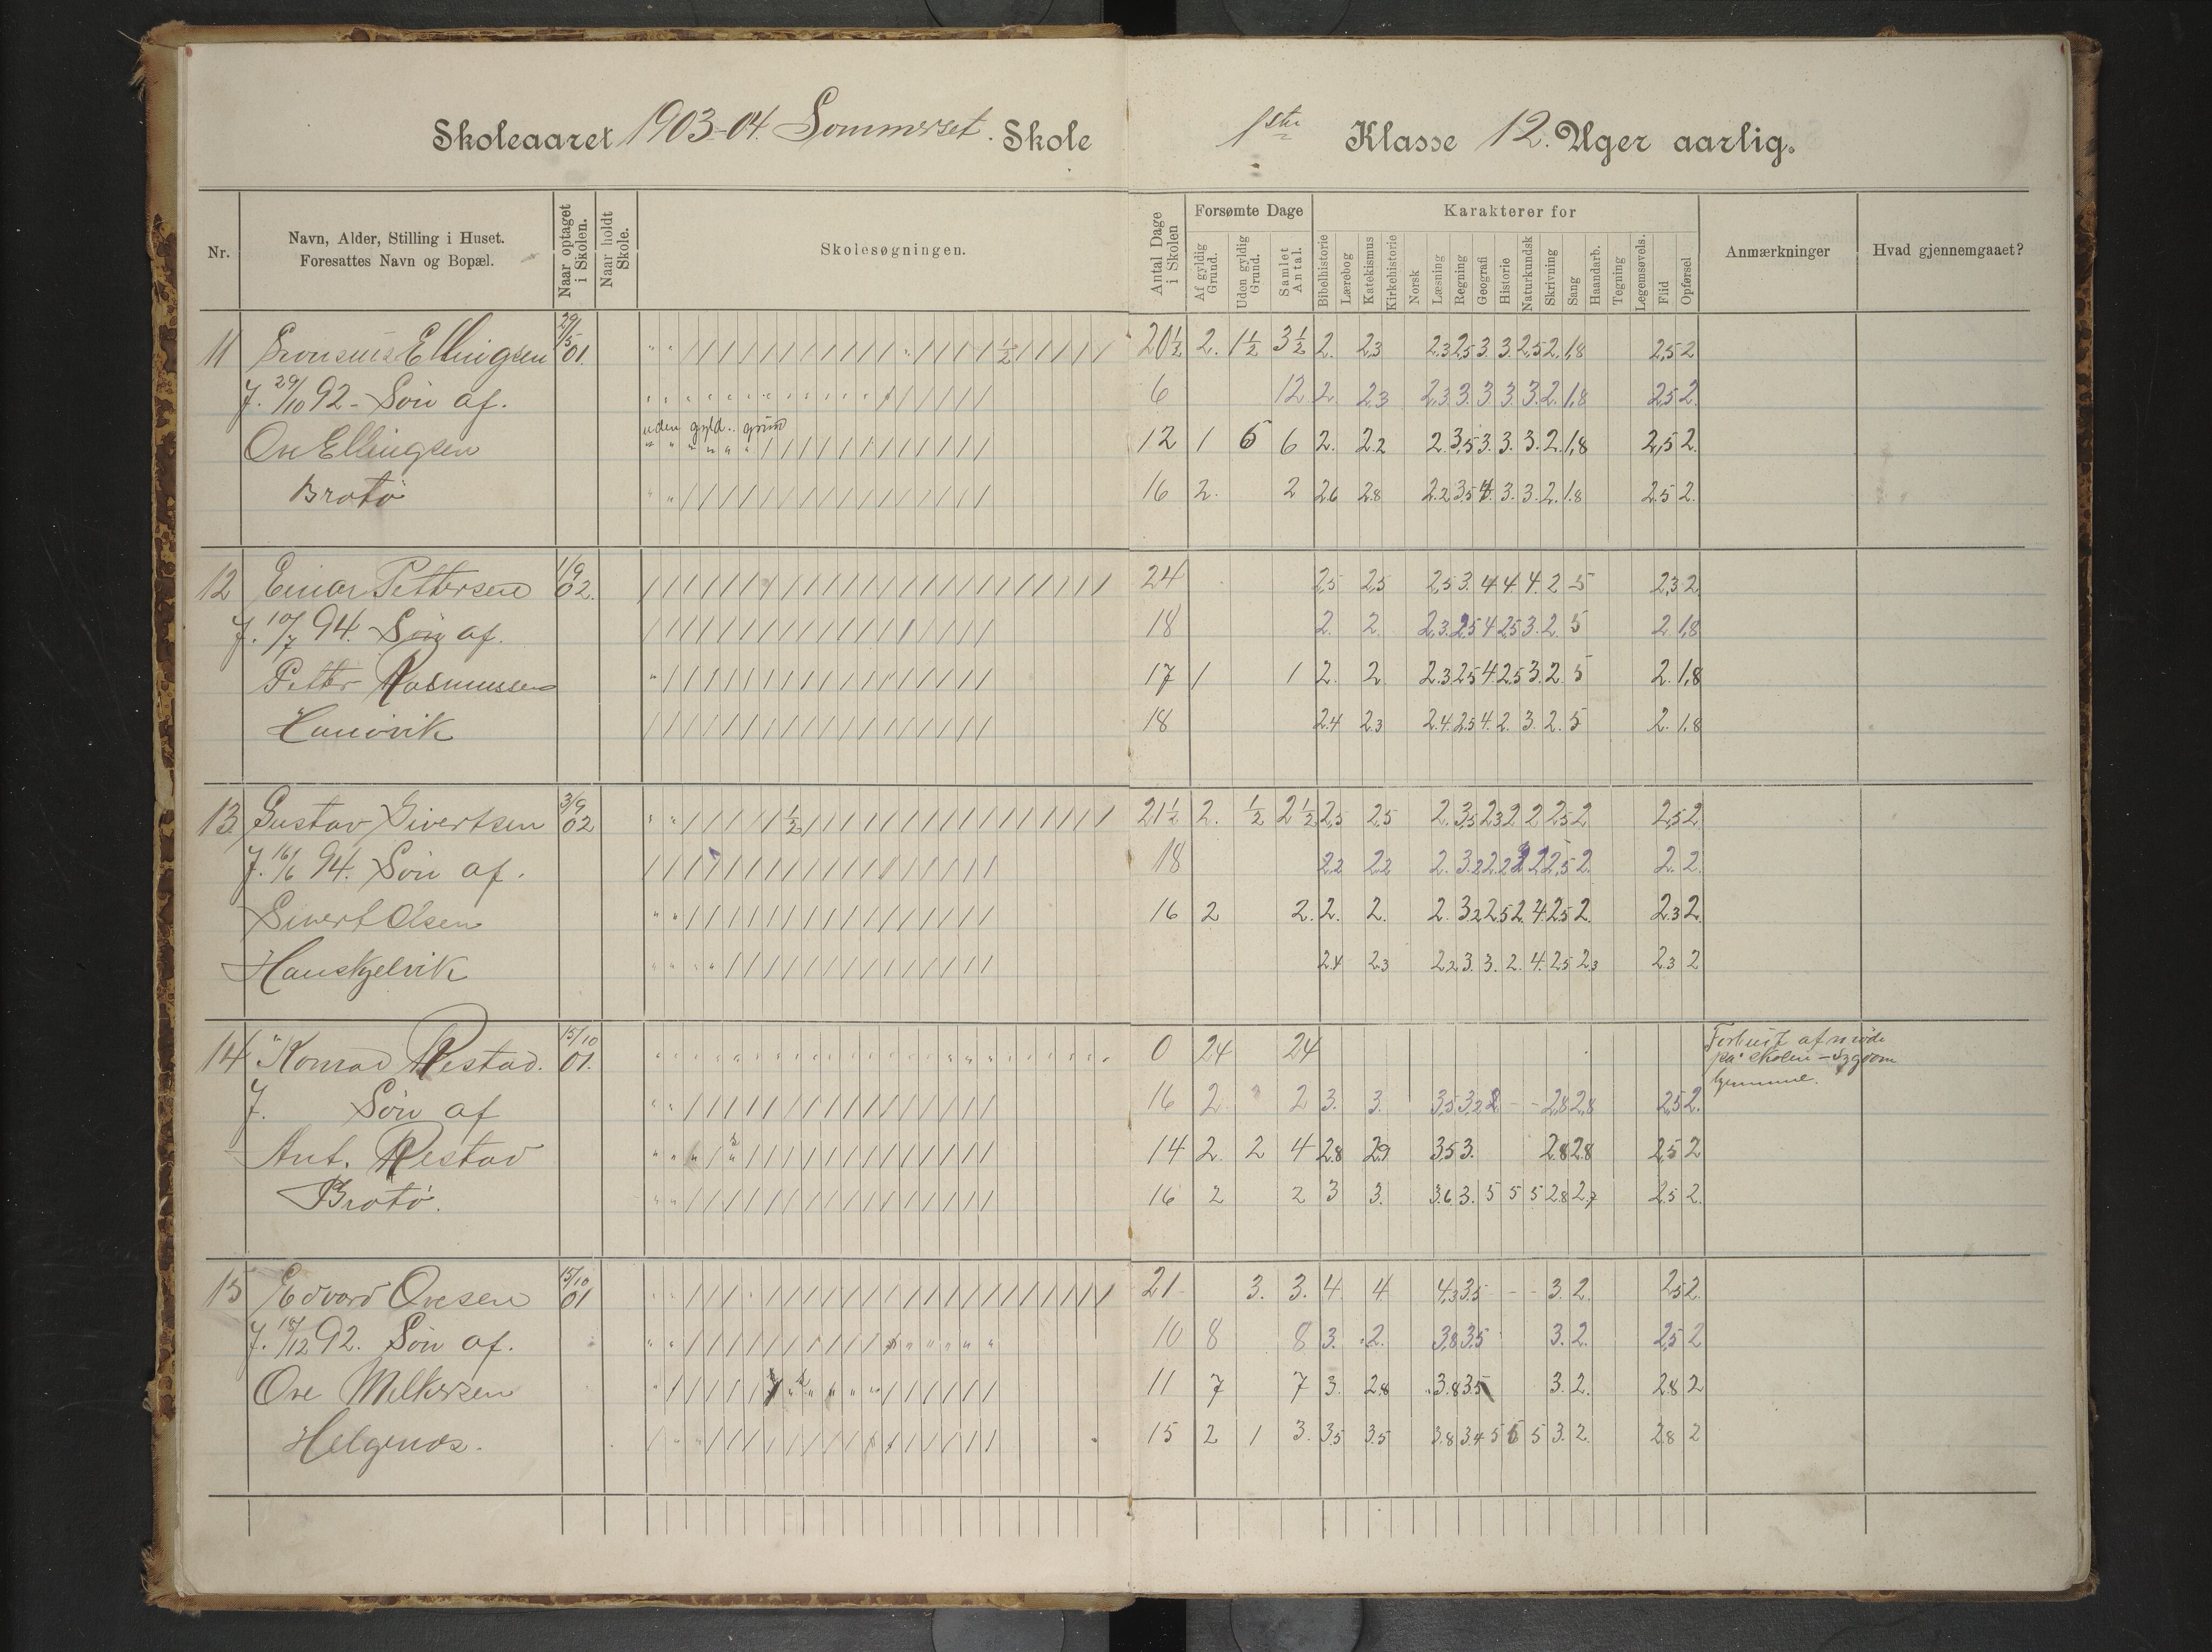 Skoleaaret 1903-04. Sommerset. Skole 1ste Klasse 12. Uger aarlig.
Nr. Navn, Alder, Stilling i Huset. Foresattes Navn og Bopæl. Naar optaget i Skolen. Naar holdt Skole. Skolesøgningen. Antal Dage i Skolen Forsømte Dage Af gyldig Grund. Uden gyldig Grund. Samlet Antal. Karakterer for Bibelhistorie Lærebog Katekismus Kirkehistorie Norsk Læsning Regning Geografi Historie Naturkundsk Skrivning Sang Haandarb. Tegning Legemsøvels. Flid Opførsel Anmærkninger Hvad gjennemgaaet?
11 Ellingsen 29/5 01. 20½ 2. 1½ 3½ 2. 2,3 2,3 2,5 3 3. 2,5 2. 1,8 2,5 2
f. 29/10 92 - Søn af. 6 12 2. 2,3 2,3 3. 3 3 3. 2. 1,8 2,5 2.
uden gyld. grund
Ove Ellingsen 12 1 5 6 2. 2,2 2. 3,5 3. 3. 3. 2. 1,8 2,5 2.
Brotø 16 2. 2 2,6 2,8 2,2 3,5 4. 3. 3. 2. 1,8 2,5 2.
12 Einar Pettersen 1/9 02. 24 2,5 2,5 2,5 3. 4 4. 4. 2 5 2,3 2
f. 10/7 94. Søn af. 18 2. 2. 2,3. 2,5 4 2,5 3. 2. 5 2 1,8
Petter Rasmussen 17 1 1 2. 2. 2,3 2,5 4. 2,5 3. 2. 5 2. 1,8
18 2,4 2,3 2,4. 2,5 4. 2. 3. 2. 5 2. 1,8
13. Gustav Sivertsen 3/9 02 ½ 21½ 2. ½ 2½ 2,5 2,5 2. 3,5 2,3 2 2 2,5 2 2,5 2.
f. 16/6 94. Søn af. 18 2,2 2,2 2. 3,2 2,2 2 2 2,5 2. 2. 2.
Sivert Olsen 16 2 2. 2. 2. 2. 3,2 2,5 2. 4. 2,5 2. 2,3 2.
Hanskjelvik 2,4 2,3 2,2 3. 3. 2. 4. 2,5 2,3 2,3 2
14 Konrad Restad. 15/10 01. 0 24 24 af møde
på skolen - sygdom
hjemme.
f. Søn af 16 2 2 3. 3. 3,5 3,2 2 - - 2,8 2,8 2,5 2.
Ant. Restad 14 2. 2 4 2,8 2,9 3,5 3. 2,8 2,8 2,5 2
Brotø. 16 2 2 3 3. 3,6 3. 5 5 5 2,8 2,7 2,5 2.
15 Edvard Ovesen 15/10 01 21 3. 3. 4. 4 4,3 3,5 - - 3. 2. 2,5 2.
f. 18/12 92. Søn af. 10 8 8 3. 2. 3,8 3,5 3. 2. 2,5 2
Ove Melkersen 11 7 7 3. 2,8 3,8 3,5 3. 2. 2,8 2
Helgenæs. 15 2 1 3. 3,5 3,5 3,8 3,4 5 5 5 3. 2. 2,8 2